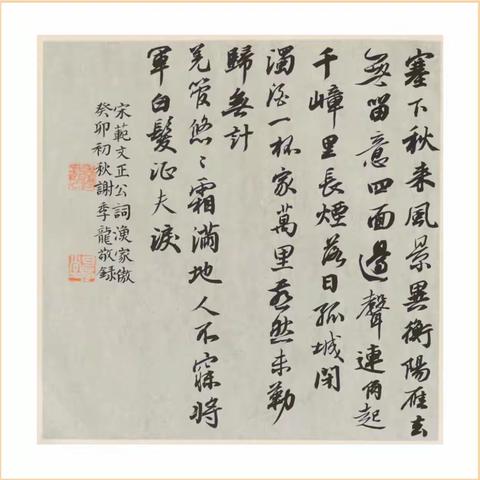 塞下秋来風景異衡陽雁去
無留意四面邊聲連角起
千嶂里長煙落日孤城閉
濁酒一杯家萬里燕然未勒
歸無計
羌管悠〻霜滿地人不寐將
軍白髮征夫淚
宋範文正公詞漁家傲
癸卯初秋謝季龍敬録